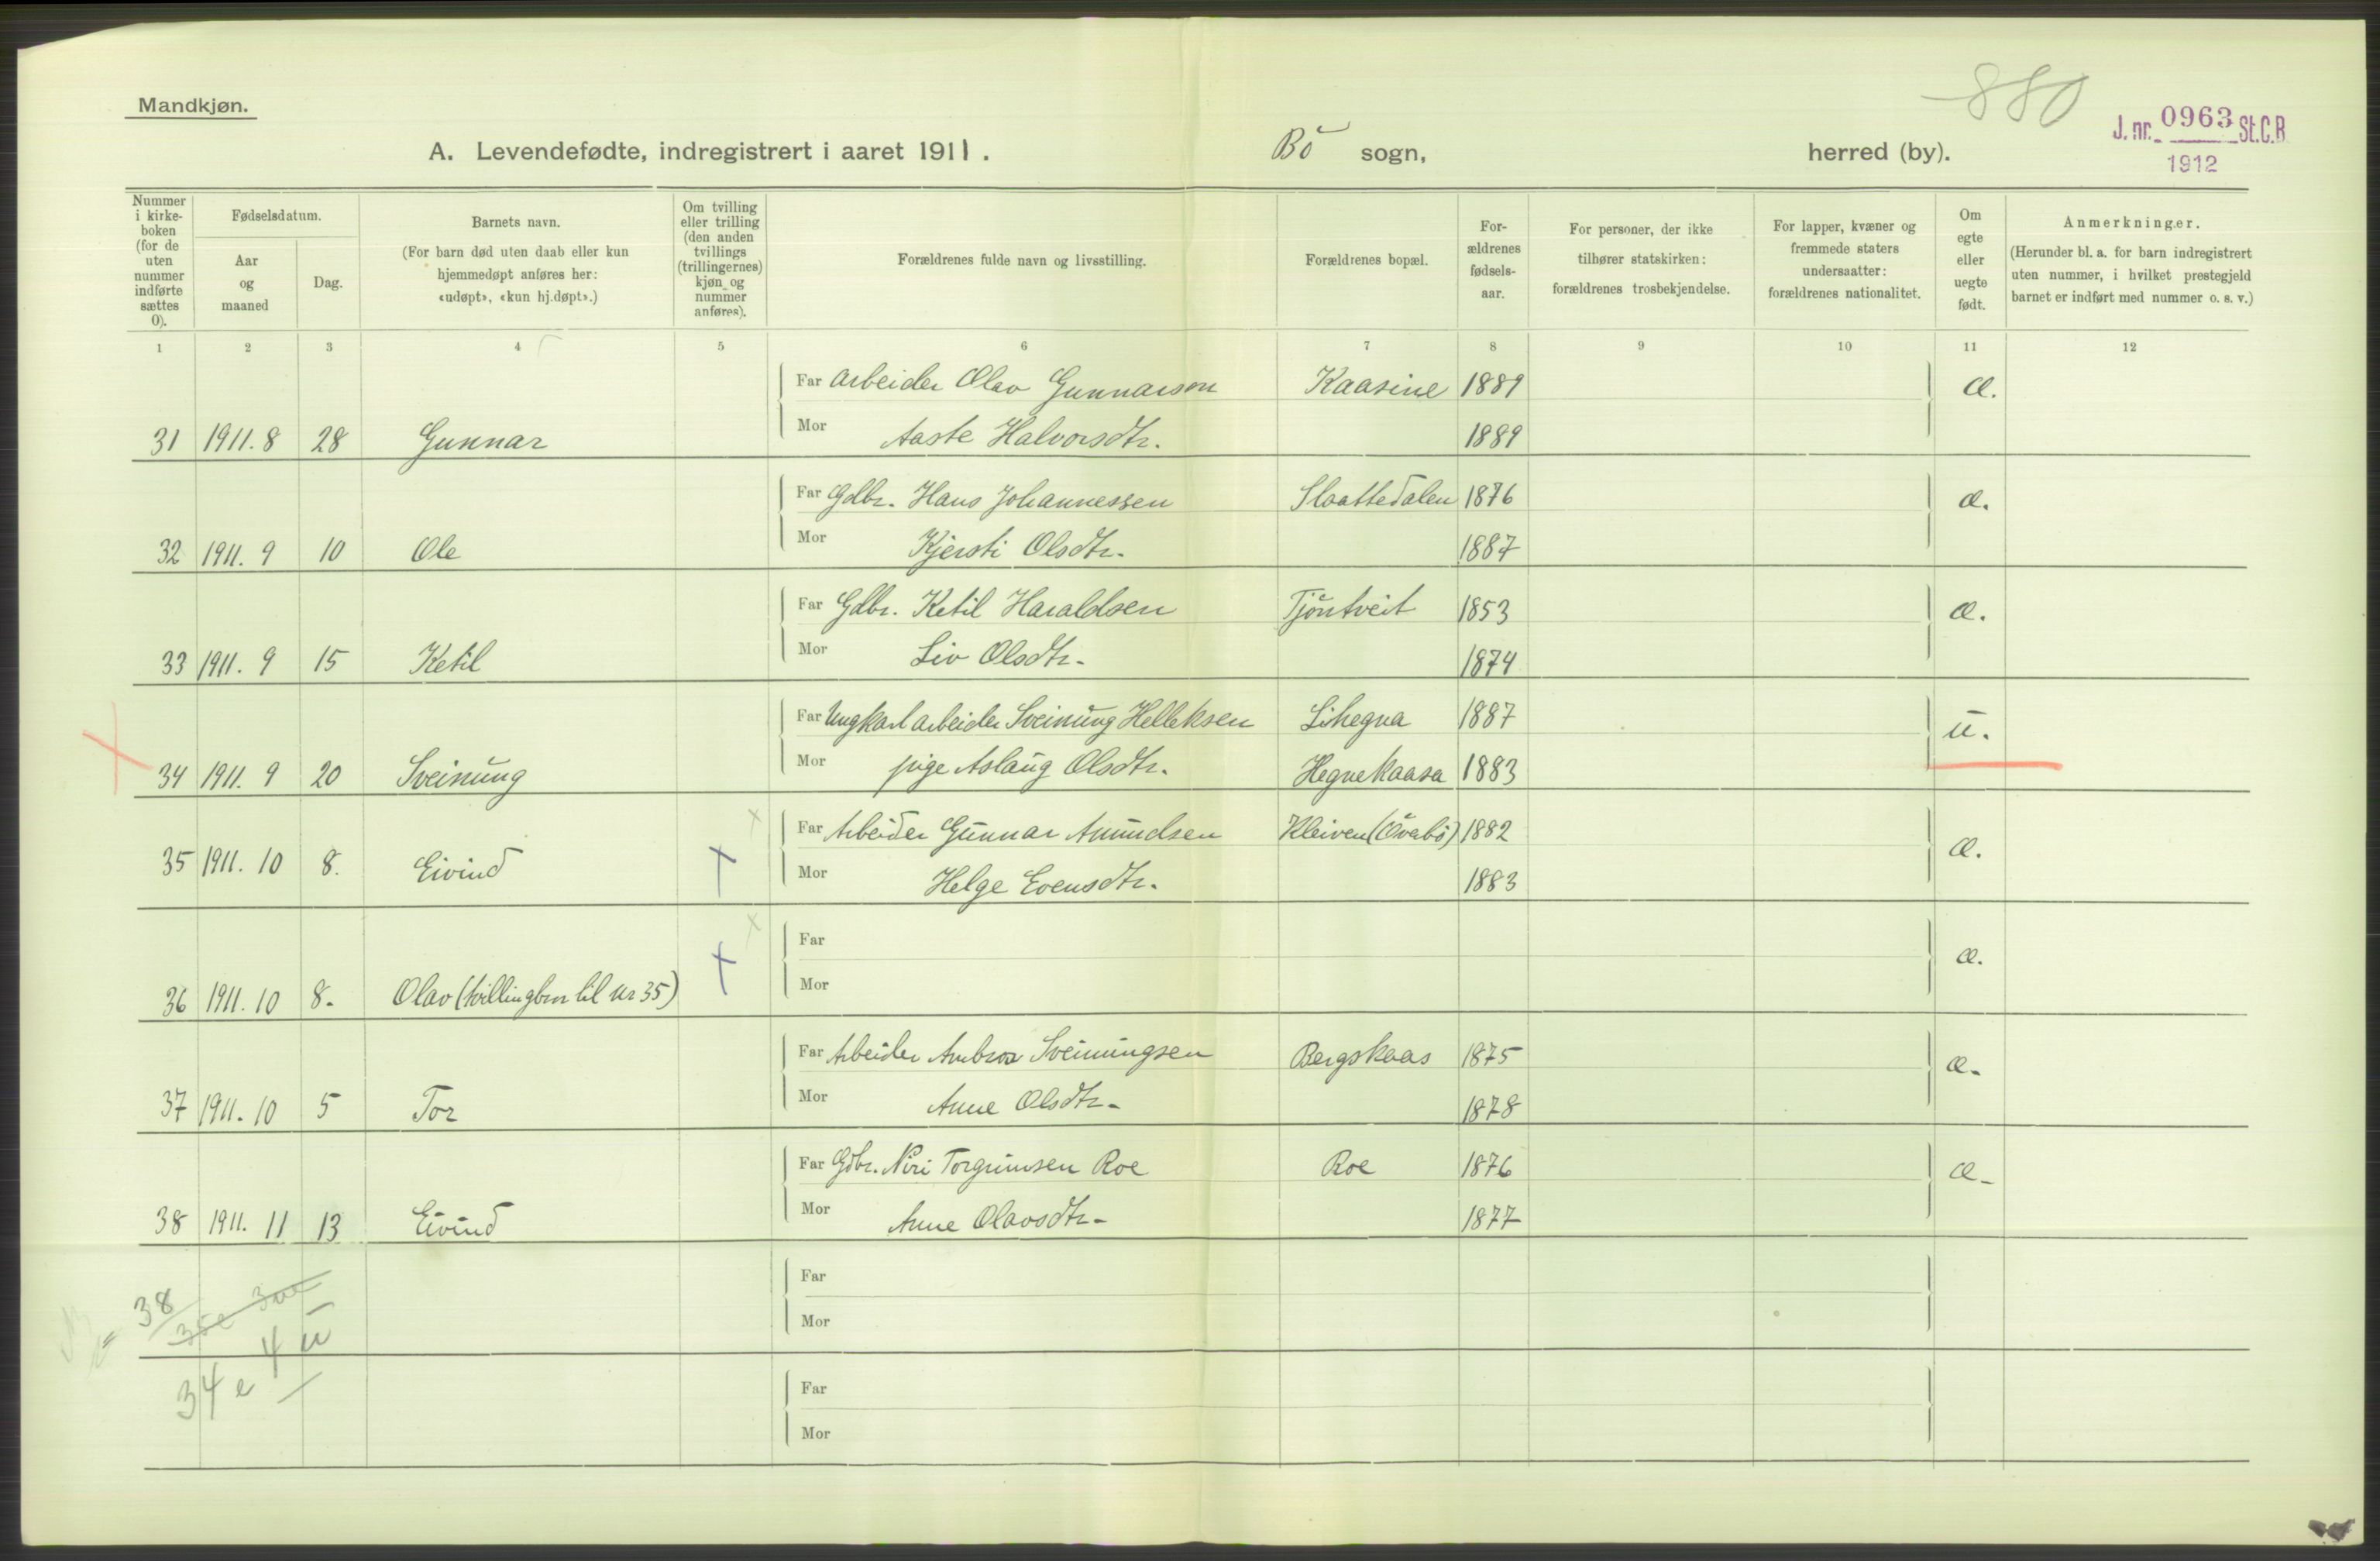 Mandkjøn.
880
J. nr. 0963 St.C.B
1912
A. Levendefødte, indregistrert i aaret 1911.
Bö sogn, herred (by).
Nummer i kirke-boken (for de uten nummer indførte sættes 0).
Fødselsdatum.
Aar og maaned
Dag.
Barnets navn.
(For barn død uten daab eller kun hjemmedøpt anføres her: «udøpt», «kun hj.døpt».)
Om tvilling eller trilling (den anden tvillings (trillingernes) kjøn og nummer anføres).
Forældrenes fulde navn og livsstilling.
Forældrenes bopæl.
For-ældrenes fødsels-aar.
For personer, der ikke tilhører statskirken: forældrenes trosbekjendelse.
For lapper, kvæner og fremmede staters undersaatter: forældrenes nationalitet.
Om egte eller uegte født.
Anmerkninger.
(Herunder bl. a. for barn indregistrert uten nummer, i hvilket prestegjeld barnet er indført med nummer o. s. v.)
1 2 3 4 5 6 7 8 9 10 11 12
Far Arbeider Olav Gunnarson Kaasine 1889 æ.
31 1911. 8 28 Gunnar Mor Aaste Halvorsdtr. 1889
Far Gdbr. Hans Johannessen Slaattedalen 1876 æ.
32 1911. 9 10 Ole Mor Kjersti Olsdtr. 1887
Far Gdbr. Ketil Haraldsen Tjöntveit 1853 æ.
33 1911. 9 15 Ketil Mor Liv Olsdtr. 1874
Far Ungkarl arbeider Sveinung Helleksen Lihegna 1887 u.
34 1911. 9 20 Sveinung Mor pige Aslaug Olsdtr. Hegnekaasa 1883
Far Arbeider Gunnar Amundsen Kleiven (Övebö) 1882 æ.
35 1911. 10 8. Eivind Mor Helge Evensdtr. 1883
Far æ.
36 1911. 10 8. Olav (tvillingbror til nr 35) Mor
Far Arbeider Ambros Sveinungsen Bergskaas 1875 æ.
37 1911. 10 5 Tor Mor Anne Olsdtr. 1878
Far Gdbr. Niri Torgrimsen Roe Roe 1876 æ
38 1911. 11 13 Eivind Mor Anne Olavsdtr. 1877
Far
38
Mor
4 u
34 e
Far
Mor